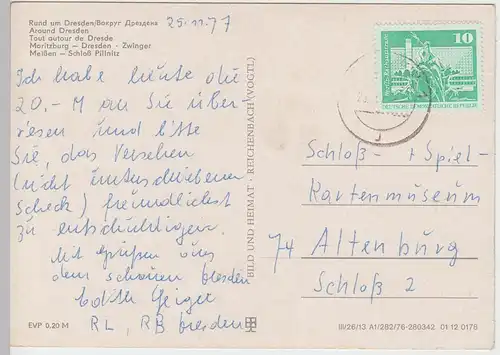 Rund um Dresden/Вокруг Дрездена
Around Dresden
Tout autour de Dresde
Moritzburg – Dresden - Zwinger
Meißen – Schloß Pillnitz
25.11.77
Ich habe heute die
20,-M an Sie über-
wiesen und bitte
Sie, das Versehen
(nicht unterschriebener
Scheck) freundlichst
zu entschuldigen.
Mit Grüßen aus
dem schönen Dresden
Edith Geiger
RL, RB Dresden
EVP 0.20 M
BILD UND HEIMAT · REICHENBACH (VOGTL.)
10
DEUTSCHE DEMOKRATISCHE REPUBLIK
Schloß- + Spiel-
kartenmuseum
74 Altenburg
Schloß 2
III/26/13 A1/282/76-280342 01 12 0178